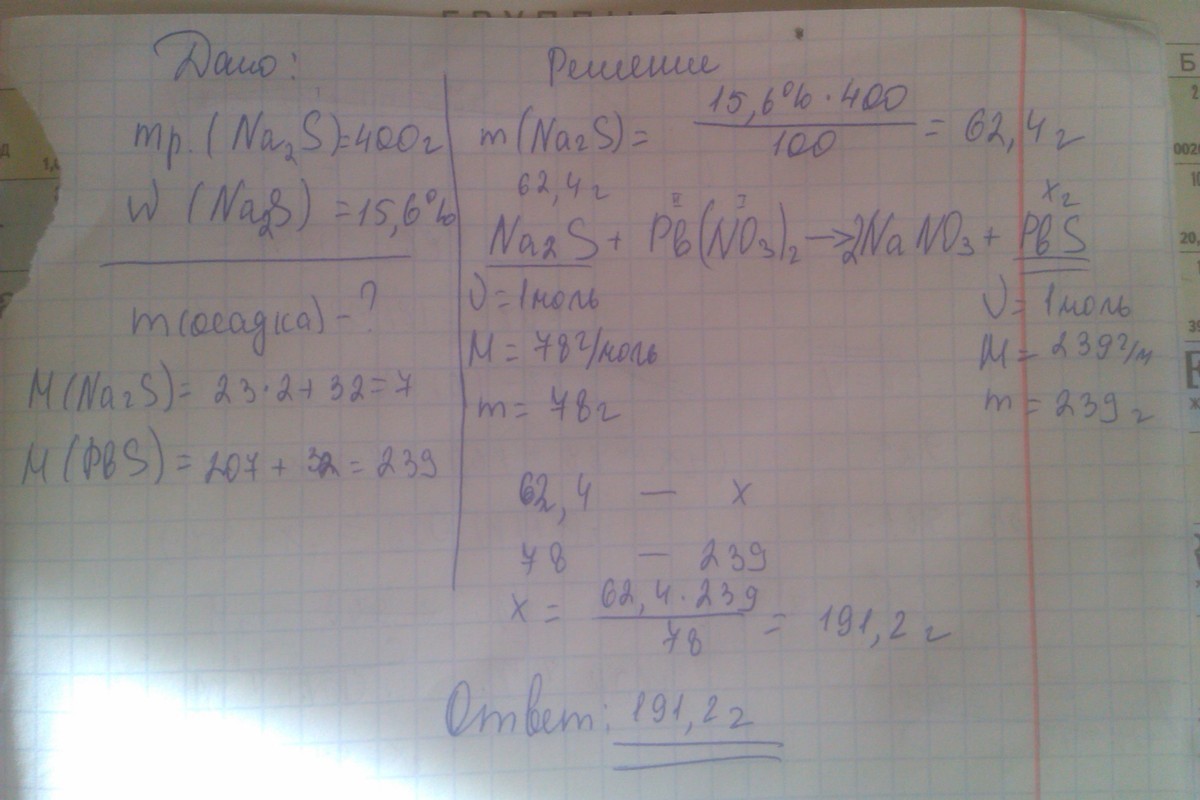 Дано:
mр.(Na₂S)=400г
W (Na₂S) =15,6%
m(осадка) - ?
M(Na₂S)= 23·2+32=7
M(PbS) = 207 + 32 = 239
Решение
m(Na₂S)= 15,6%·400 / 100 = 62,4г
62,4г xг
II I
Na₂S + Pb(NO₃)₂ → 2NaNO₃ + PbS
ν=1моль ν=1моль
M=78г/моль M=239г/м
m=78г m=239г
62,4 — x
78 — 239
x = 62,4·239 / 78 = 191,2г
Ответ: 191,2г